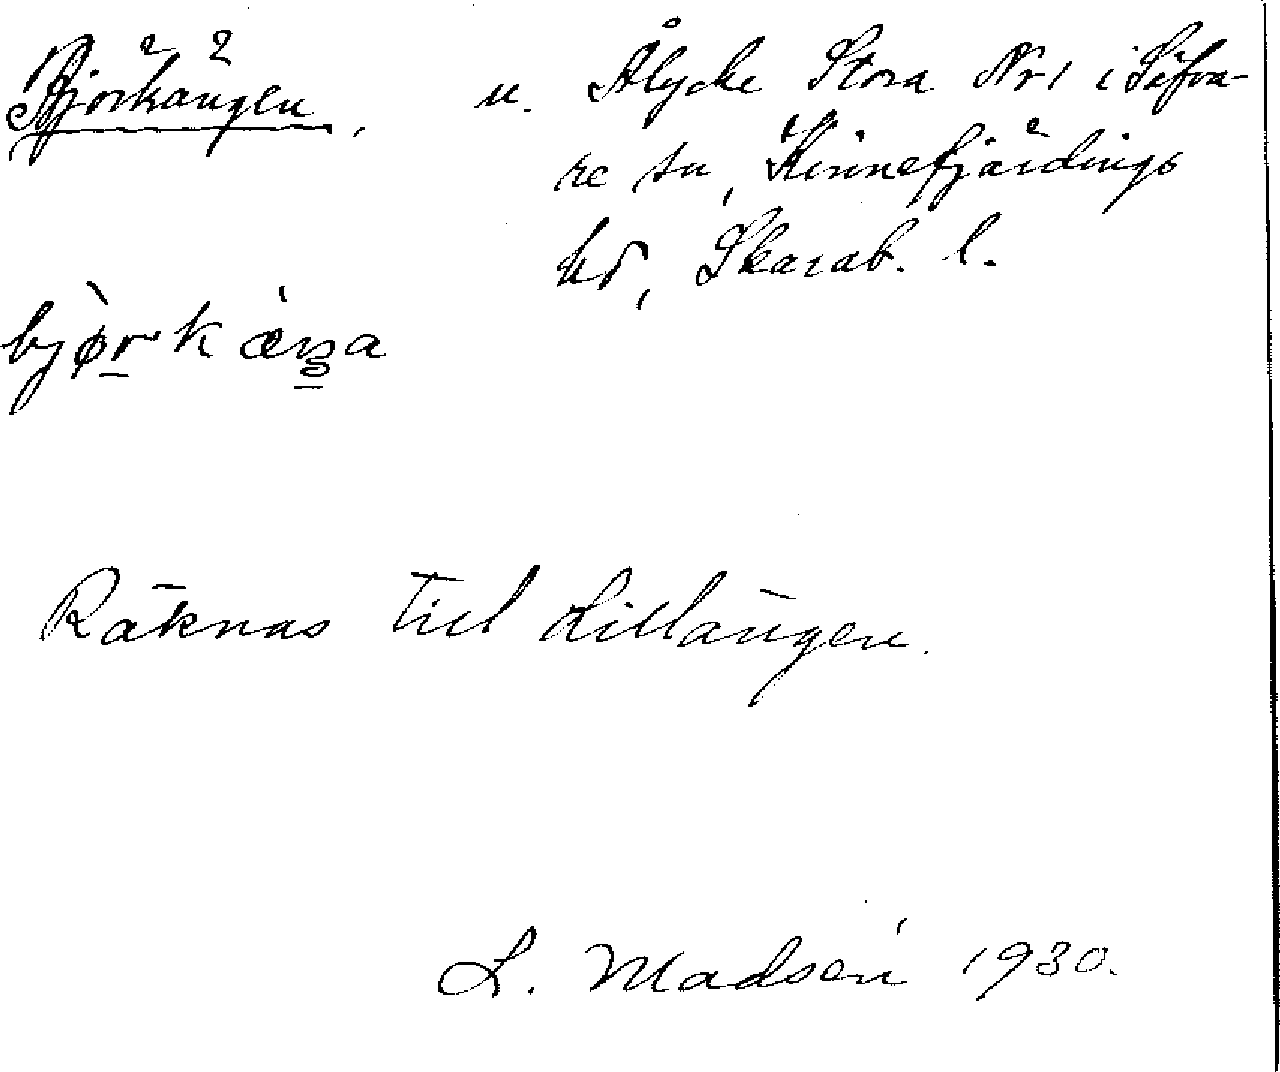 Björkängen, u. Ålycke Stora Nr 1 i Säfva-
re sn, Kinnefjärdings
hd, Skarab. l.
bjòrkæŋa
Räknas till Lillängen.
L. Madsén 1930.